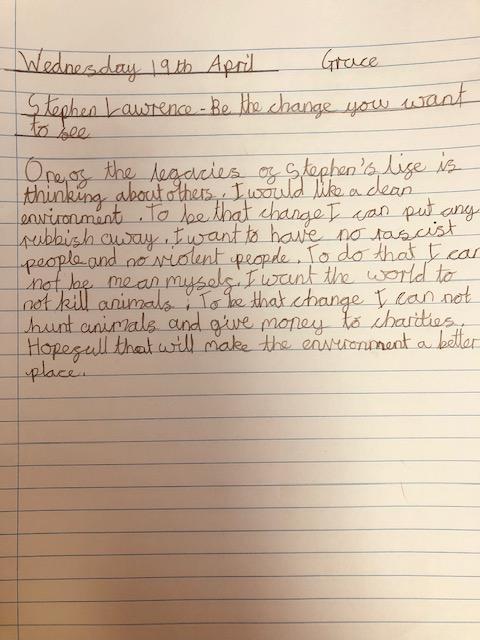 Wednesday 19th April Grace
Stephen Lawrence - Be the change you want
to see
One of the legacies of Stephen's life is
thinking about others. I would like a clean
environment. To be that change I can put any
rubbish away. I want to have no rascist
people and no violent people. To do that I can
not be mean myself. I want the world to
not kill animals. To be that change I can not
hunt animals and give money to charities.
Hopefull that will make the environment a better
place.